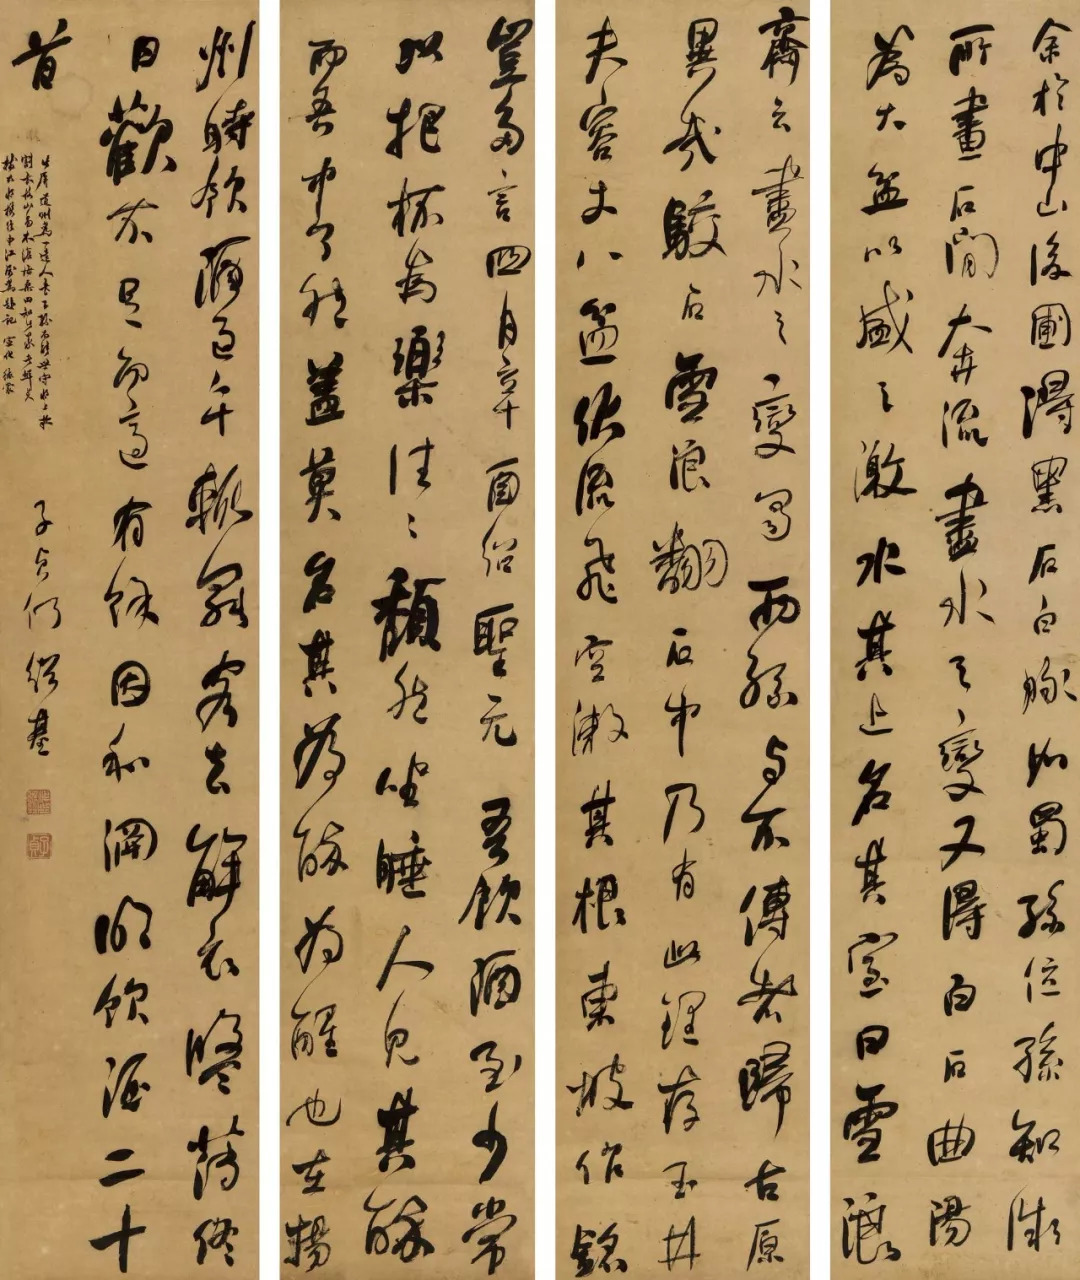 余於中山後圃得黑石白脈如蜀孫位孫知微
所畫石間奔流盡水之變又得白石曲陽
為大盆以盛之激水其上名其室曰雪浪
齋云盡水之變蜀兩孫與不傳者歸九原
異哉駁石雪浪翻石中乃有此理存玉井
夫容丈八盆伏流飛空漱其根東坡作銘
豈多言四月辛酉紹聖元 吾飲酒至少常
以把杯為樂往往頹然坐睡人見其醉
而吾中了然蓋莫名其為醉為醒也在揚
州時飲酒過午輒罷客去解衣盤薄終
日歡不足而適有餘因和淵明飲酒二十
首
子貞何紹基